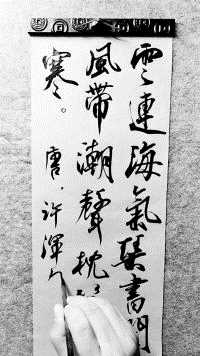 雲連海氣琴書潤
風帶潮聲枕
寒。唐.許渾